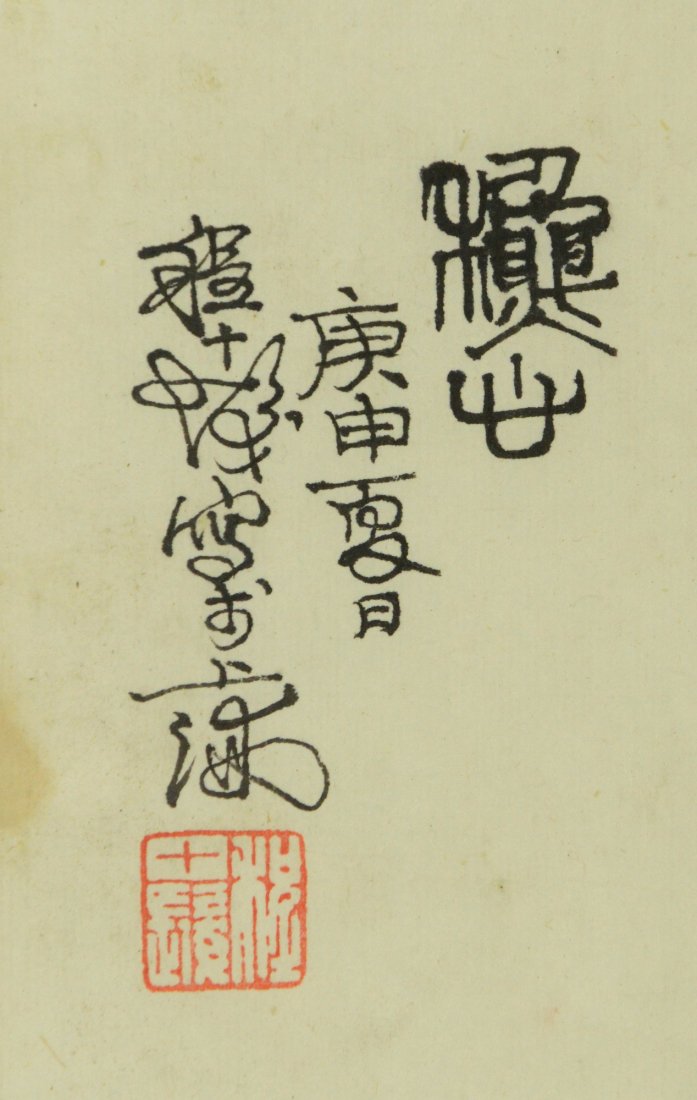 庚申夏日
程十髮寫於上海
程十髮